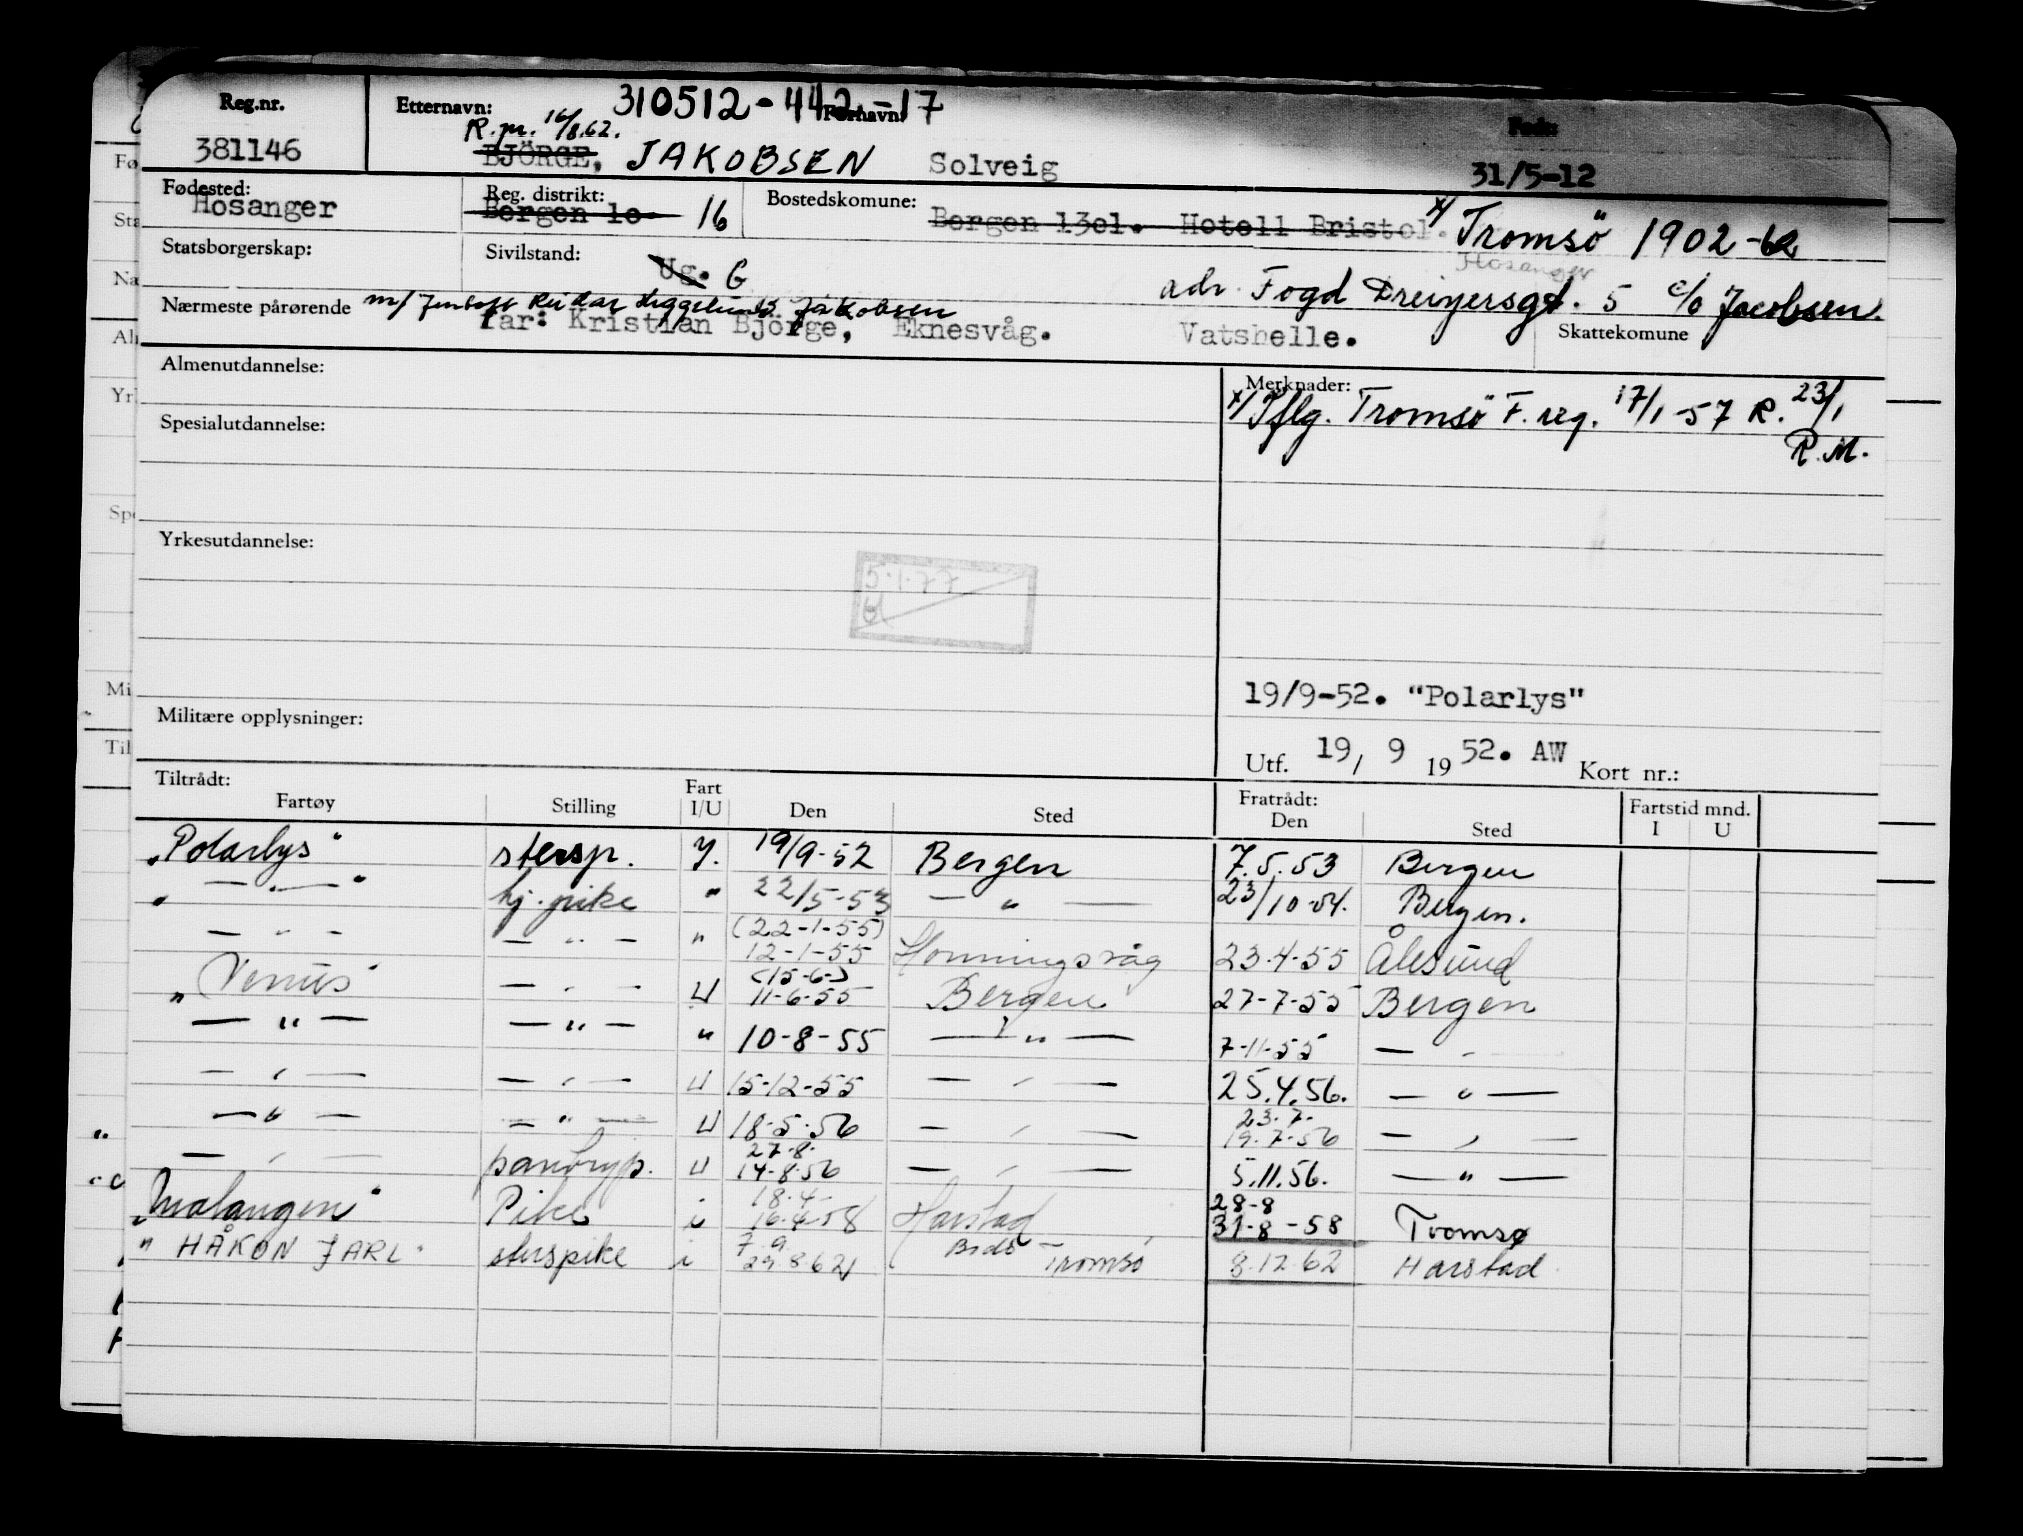 Reg.nr. Etternavn: 310512-442-17 Fornavn: Født:
R.m. 16/8.62.
381146 BJÖRGE, JAKOBSEN Solveig 31/5-12
Fødested: Reg. distrikt: Bostedskomune:
Hosanger Bergen 1o 16 Bergen 13el. Hotell Bristol. x/ Tromsö 1902-62
Statsborgerskap: Sivilstand: Ug. G Hosanger
adr. Fogd Dreiyersgt. 5 c/o Jacobsen.
Nærmeste pårørende m/ Reidar Jakobsen
far: Kristian Björge, Eknesvåg. Vatshelle. Skattekomune
Almenutdannelse: Merknader:
x/ Iflg. Tromsö F. reg. 17/1-57 R. 23/1
R.M.
Spesialutdannelse:
Yrkesutdannelse:
5.1.77
19/9-52. "Polarlys"
Militære opplysninger:
Utf. 19/ 9 1952. AW Kort nr.:
Tiltrådt: Fratrådt:
Fartøy Stilling Fart I/U Den Sted Den Sted Fartstid mnd. I U
"Polarlys" stersp. I. 19/9-52 Bergen 7.5.53 Bergen
" — " — " hj.pike " 22/5-53 — " — 23/10-54. Bergen.
— " — — " — " (22-1-55) 12-1-55 Honningsvåg 23-4-55 Ålesund
"Venus" — " — U (15-6-) 11-6-55 Bergen 27-7-55 Bergen
— " — — " — " 10-8-55 — " — 7-11-55 — " —
— " — — " — U 15-12-55 — " — 25.4.56. — " —
— " — — " — U 18-5-56 — " — 23.7. 19.7-56 — " —
— " — pantryp. U 27.8. 14-8-56 — " — 5.11.56. — " —
"Malangen" Pike i 18.4- 16.4-58 Harstad 28-8 31-8-58 Tromsø
"HÅKON JARL" sterspike i 7.9 29.8.62 Tromsö 8.12.62 Harstad